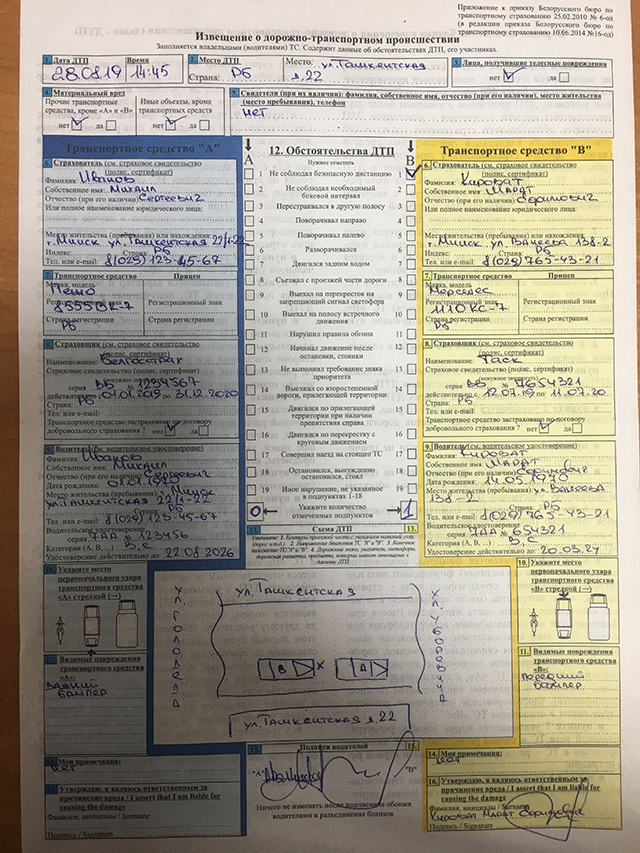 Приложение к приказу Белорусского бюро по
транспортному страхованию 25.02.2010 № 6-од
(в редакции приказа Белорусского бюро по
транспортному страхованию 10.06.2014 №16-од)
Извещение о дорожно-транспортном происшествии
Заполняется владельцами (водителями) ТС. Содержит данные об обстоятельствах ДТП, его участниках.
1. Дата ДТП Время
28.08.19 14:45
2. Место ДТП Место: ул.Ташкентская
Страна: РБ д.22
3. Лица, получившие телесные повреждения
нет да
4. Материальный вред
Прочие транспортные средства, кроме «А» и «В»
нет да
Иные объекты, кроме транспортных средств
нет да
5. Свидетели (при их наличии): фамилия, собственное имя, отчество (при его наличии), место жительства
(место пребывания), телефон
нет
Транспортное средство "А"
6. Страхователь (см. страховое свидетельство
(полис, сертификат)
Фамилия: Иванов
Собственное имя: Михаил
Отчество (при его наличии) Сергеевич
Или полное наименование юридического лица:
Место жительства (пребывания) или нахождения
г.Минск ул.Ташкентская 22/1-22
Индекс: Страна РБ
Тел. или e-mail: 8(029) 123-45-67
7. Транспортное средство Прицеп
Марка, модель
Пежо
Регистрационный знак
8555ВК-7
Страна регистрации Страна регистрации
РБ
8. Страховщик (см. страховое свидетельство
(полис, сертификат)
Наименование: Белгосстрах
Страховое свидетельство (полис, сертификат)
(ненужное зачеркнуть)
серия ВБ № 1234567
действительно с 01.01.2019 по 31.12.2020
Страна: РБ
Тел. или e-mail:
Транспортное средство застраховано по договору
добровольного страхования ? нет да
9. Водитель (см. водительское удостоверение)
Фамилия: Иванов
Собственное имя: Михаил
Отчество (при его наличии) Сергеевич
Дата рождения
Место жительства (пребывания) г.Минск
ул.Ташкентская 22/1-22
Страна РБ
Тел. или e-mail 8(029) 123-45-67
Водительское удостоверение
серия 7АА № 123456
Категория (А, В, ...) В,С
Удостоверение действительно до 22.08.2026
10. Укажите место
первоначального удара
транспортного средства
«А» стрелкой (→)
11. Видимые повреждения
транспортного средства
«А»:
Задний
бампер
14. Мои примечания:
нет
16. Утверждаю, я являюсь ответственным за
причинение вреда / I assert that I am liable for
causing the damage
Фамилия, инициалы / Surname
Подпись / Signature
А 12. Обстоятельства ДТП В
Нужное отметить
1 Не соблюдал безопасную дистанцию 1
2 Не соблюдал необходимый боковой интервал 2
3 Перестраивался в другую полосу 3
4 Поворачивал направо 4
5 Поворачивал налево 5
6 Разворачивался 6
7 Двигался задним ходом 7
8 Съезжал с проезжей части дороги 8
9 Выехал на перекресток на запрещающий сигнал светофора 9
10 Выехал на полосу встречного движения 10
11 Нарушил правила обгона 11
12 Начинал движение после остановки, стоянки 12
13 Не выполнил требование знака приоритета 13
14 Выезжал со второстепенной дороги, прилегающей территории 14
15 Двигался по прилегающей территории при наличии препятствия справа 15
16 Двигался по перекрестку с круговым движением 16
17 Совершил наезд на стоящее ТС 17
18 Остановился, вынужденно остановился, стоял 18
19 Иное нарушение, не указанное в подпунктах 1-18 19
0 Укажите количество отмеченных подпунктов 1
13. Схема ДТП 13.
ул.Ташкентская
ул.Голодеда
ул.Уборевича
В X А
ул.Ташкентская д.22
15. Подписи водителей 15.
"А" "В"
Ничего не изменять после подписания обоими
водителями и разъединения бланков
Транспортное средство "В"
6. Страхователь (см. страховое свидетельство
(полис, сертификат)
Фамилия: Кироват
Собственное имя: Марат
Отчество (при его наличии)
Или полное наименование юридического лица:
Место жительства (пребывания) или нахождения
г.Минск ул.Ванеева 138-2
Индекс: Страна РБ
Тел. или e-mail: 8(029) 765-43-21
7. Транспортное средство Прицеп
Марка, модель
Мерседес
Регистрационный знак Регистрационный знак
1110КС-7
Страна регистрации Страна регистрации
РБ
8. Страховщик (см. страховое свидетельство
(полис, сертификат)
Наименование: Таск
Страховое свидетельство (полис, сертификат)
(ненужное зачеркнуть)
серия ВБ № 7654321
действительно с 12.07.19 по 11.07.20
Страна: РБ
Тел. или e-mail:
Транспортное средство застраховано по договору
добровольного страхования ? нет да
9. Водитель (см. водительское удостоверение)
Фамилия: Кироват
Собственное имя: Марат
Отчество (при его наличии)
Дата рождения 14.05.1970
Место жительства (пребывания) ул.Ванеева
138-2
Страна РБ
Тел. или e-mail 8(029) 765-43-21
Водительское удостоверение
серия 7АА № 654321
Категория (А, В, ...) В,С
Удостоверение действительно до 20.05.27
10. Укажите место
первоначального удара
транспортного средства
«В» стрелкой (→)
11. Видимые повреждения
транспортного средства
«В»:
Передний
бампер
14. Мои примечания:
нет
16. Утверждаю, я являюсь ответственным за
причинение вреда / I assert that I am liable for
causing the damage
Фамилия, инициалы / Surname
Кироват Марат
Подпись / Signature